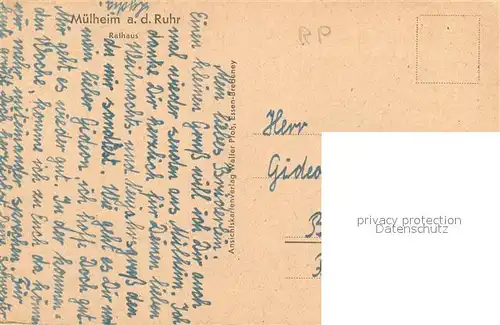 Mülheim a. d. Ruhr
Rathaus
Lydia
Mein liebes Brüderlein!
Einen kleinen Gruß will ich Dir auch
mal wieder senden aus Mülheim. Ich
danke Dir herzlich für Deinen lieben
Weihnachts- und Neujahrsgruß den
du mir sandtest. Wie geht es Dir
mein lieber Gideon, ich hoffe doch gut.
Mir geht es wieder gut. In der kommen-
den Woche, komme ich zu Euch, da können
wir mehr miteinander sprechen. Für
heute grüßt Dich Deine Schwester
Ansichtskartenverlag Walter Pfoh, Essen-Bredeney
RP
Herr
Gideo
B
privacy protection
Datenschutz